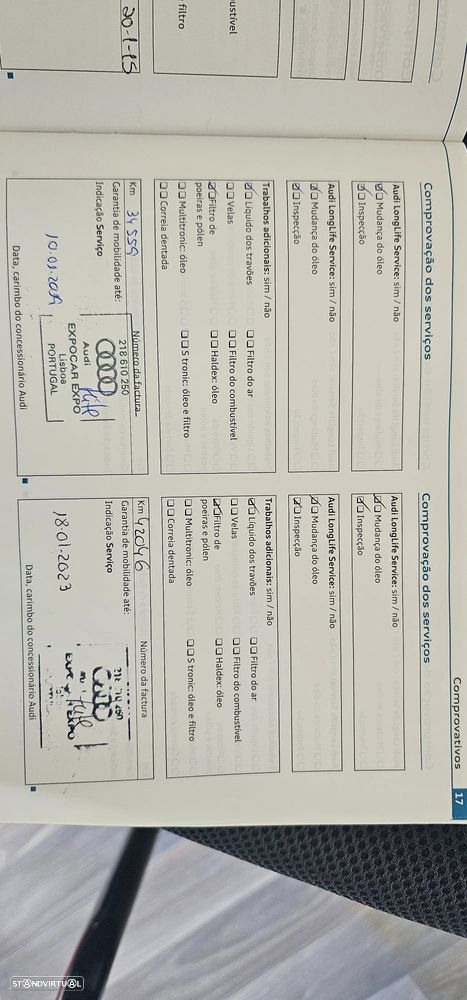 20-1-15
filtro
ustível
Comprovativos
17
Comprovação dos serviços
Audi LongLife Service: sim / não
Mudança do óleo
Inspecção
Audi LongLife Service: sim / não
Mudança do óleo
Inspecção
Trabalhos adicionais: sim / não
Líquido dos travões
Filtro do ar
Velas
Filtro do combustível
Filtro de
poeiras e pólen
Haldex: óleo
Multitronic: óleo
S tronic: óleo e filtro
Correia dentada
Km 34 559
Número da factura
Garantia de mobilidade até:
218 610 250
Indicação Serviço
Audi
EXPOCAR EXPO
Lisboa
PORTUGAL
Data, carimbo do concessionário Audi
Comprovação dos serviços
Audi LongLife Service: sim / não
Mudança do óleo
Inspecção
Audi LongLife Service: sim / não
Mudança do óleo
Inspecção
Trabalhos adicionais: sim / não
Líquido dos travões
Filtro do ar
Velas
Filtro do combustível
Filtro de
poeiras e pólen
Haldex: óleo
Multitronic: óleo
S tronic: óleo e filtro
Correia dentada
Km 42046
Número da factura
Garantia de mobilidade até:
Indicação Serviço
18.01.2023
Data, carimbo do concessionário Audi
STANDVIRTUAL